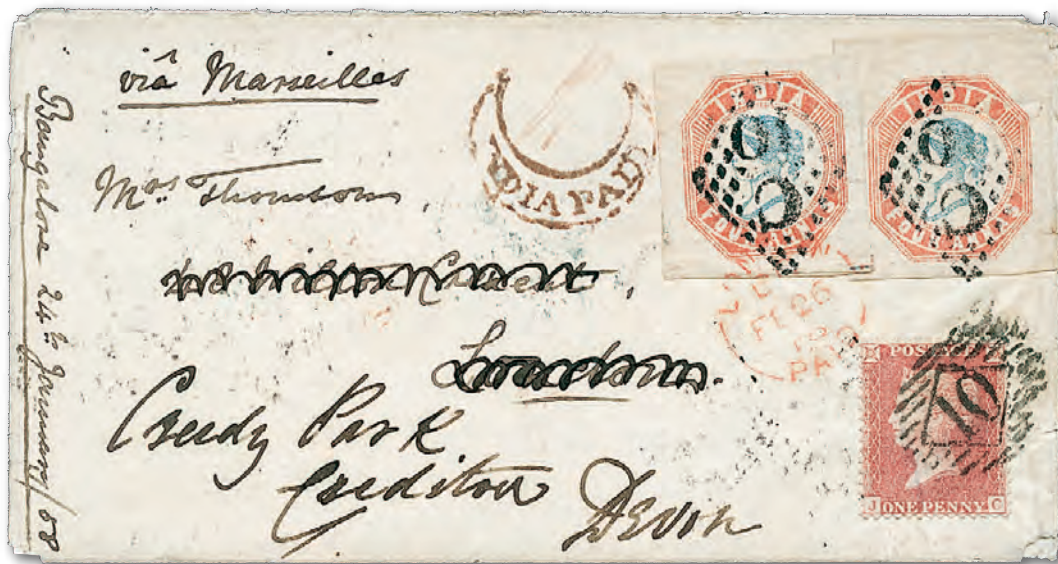 viâ Marseilles
Mrs. Thomson,
London.
Creedy Park
Crediton
Devon
Bangalore 24th January/58
INDIA PAID
INDIA
FOUR ANNAS
INDIA
FOUR ANNAS
FE 26
PAID
POST
J ONE PENNY C
10